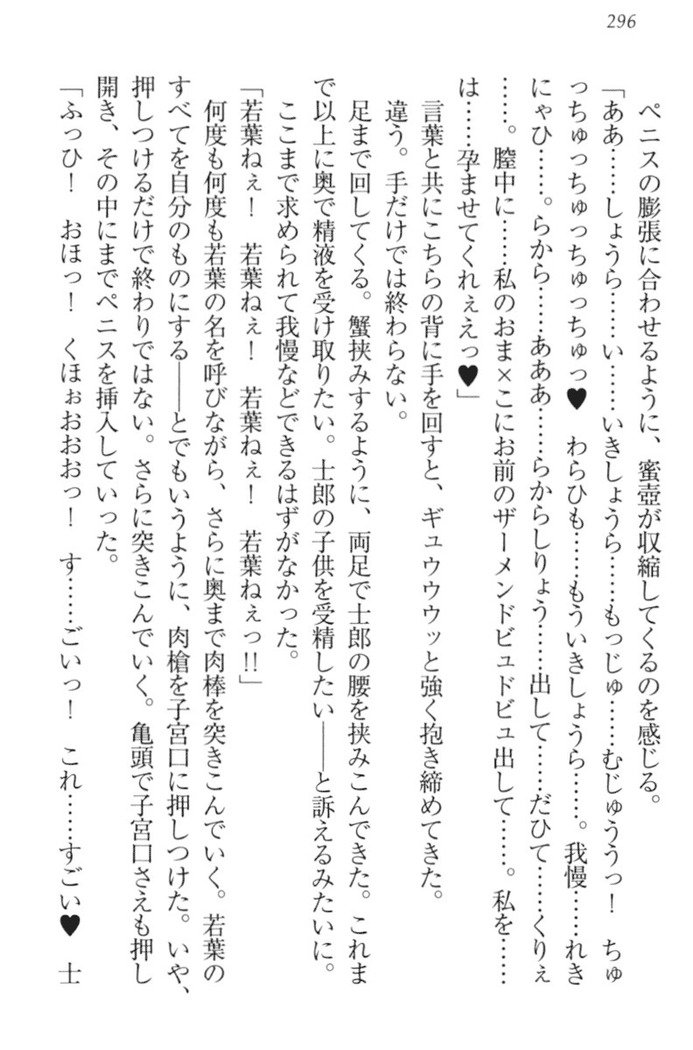 296
ペニスの膨張に合わせるように、蜜壺が収縮してくるのを感じる。
「ああ……しょうら……い……いきしょうら……もっじゅ……むじゅううっ！　ちゅ
っちゅっちゅっちゅっ♥　わらひも……もういきしょうら……。我慢……れき
にゃひ……。らから……あああ……らからしりょう……出して……だひて……くりぇ
……。膣中に……私のおま×こにお前のザーメンドビュドビュ出して……。私を……
は……孕ませてくれぇえっ♥」
言葉と共にこちらの背に手を回すと、ギュウウウッと強く抱き締めてきた。
違う。手だけでは終わらない。
足まで回してくる。蟹挟みするように、両足で士郎の腰を挟みこんできた。これま
で以上に奥で精液を受け取りたい。士郎の子供を受精したい――と訴えるみたいに。
ここまで求められて我慢などできるはずがなかった。
「若葉ねぇ！　若葉ねぇ！　若葉ねぇ！　若葉ねぇっ!!」
何度も何度も若葉の名を呼びながら、さらに奥まで肉棒を突きこんでいく。若葉の
すべてを自分のものにする――とでもいうように、肉槍を子宮口に押しつけた。いや、
押しつけるだけで終わりではない。さらに突きこんでいく。亀頭で子宮口さえも押し
開き、その中にまでペニスを挿入していった。
「ふっひ！　おほっ！　くほぉおおおっ！　す……ごいっ！　これ……すごい♥　士